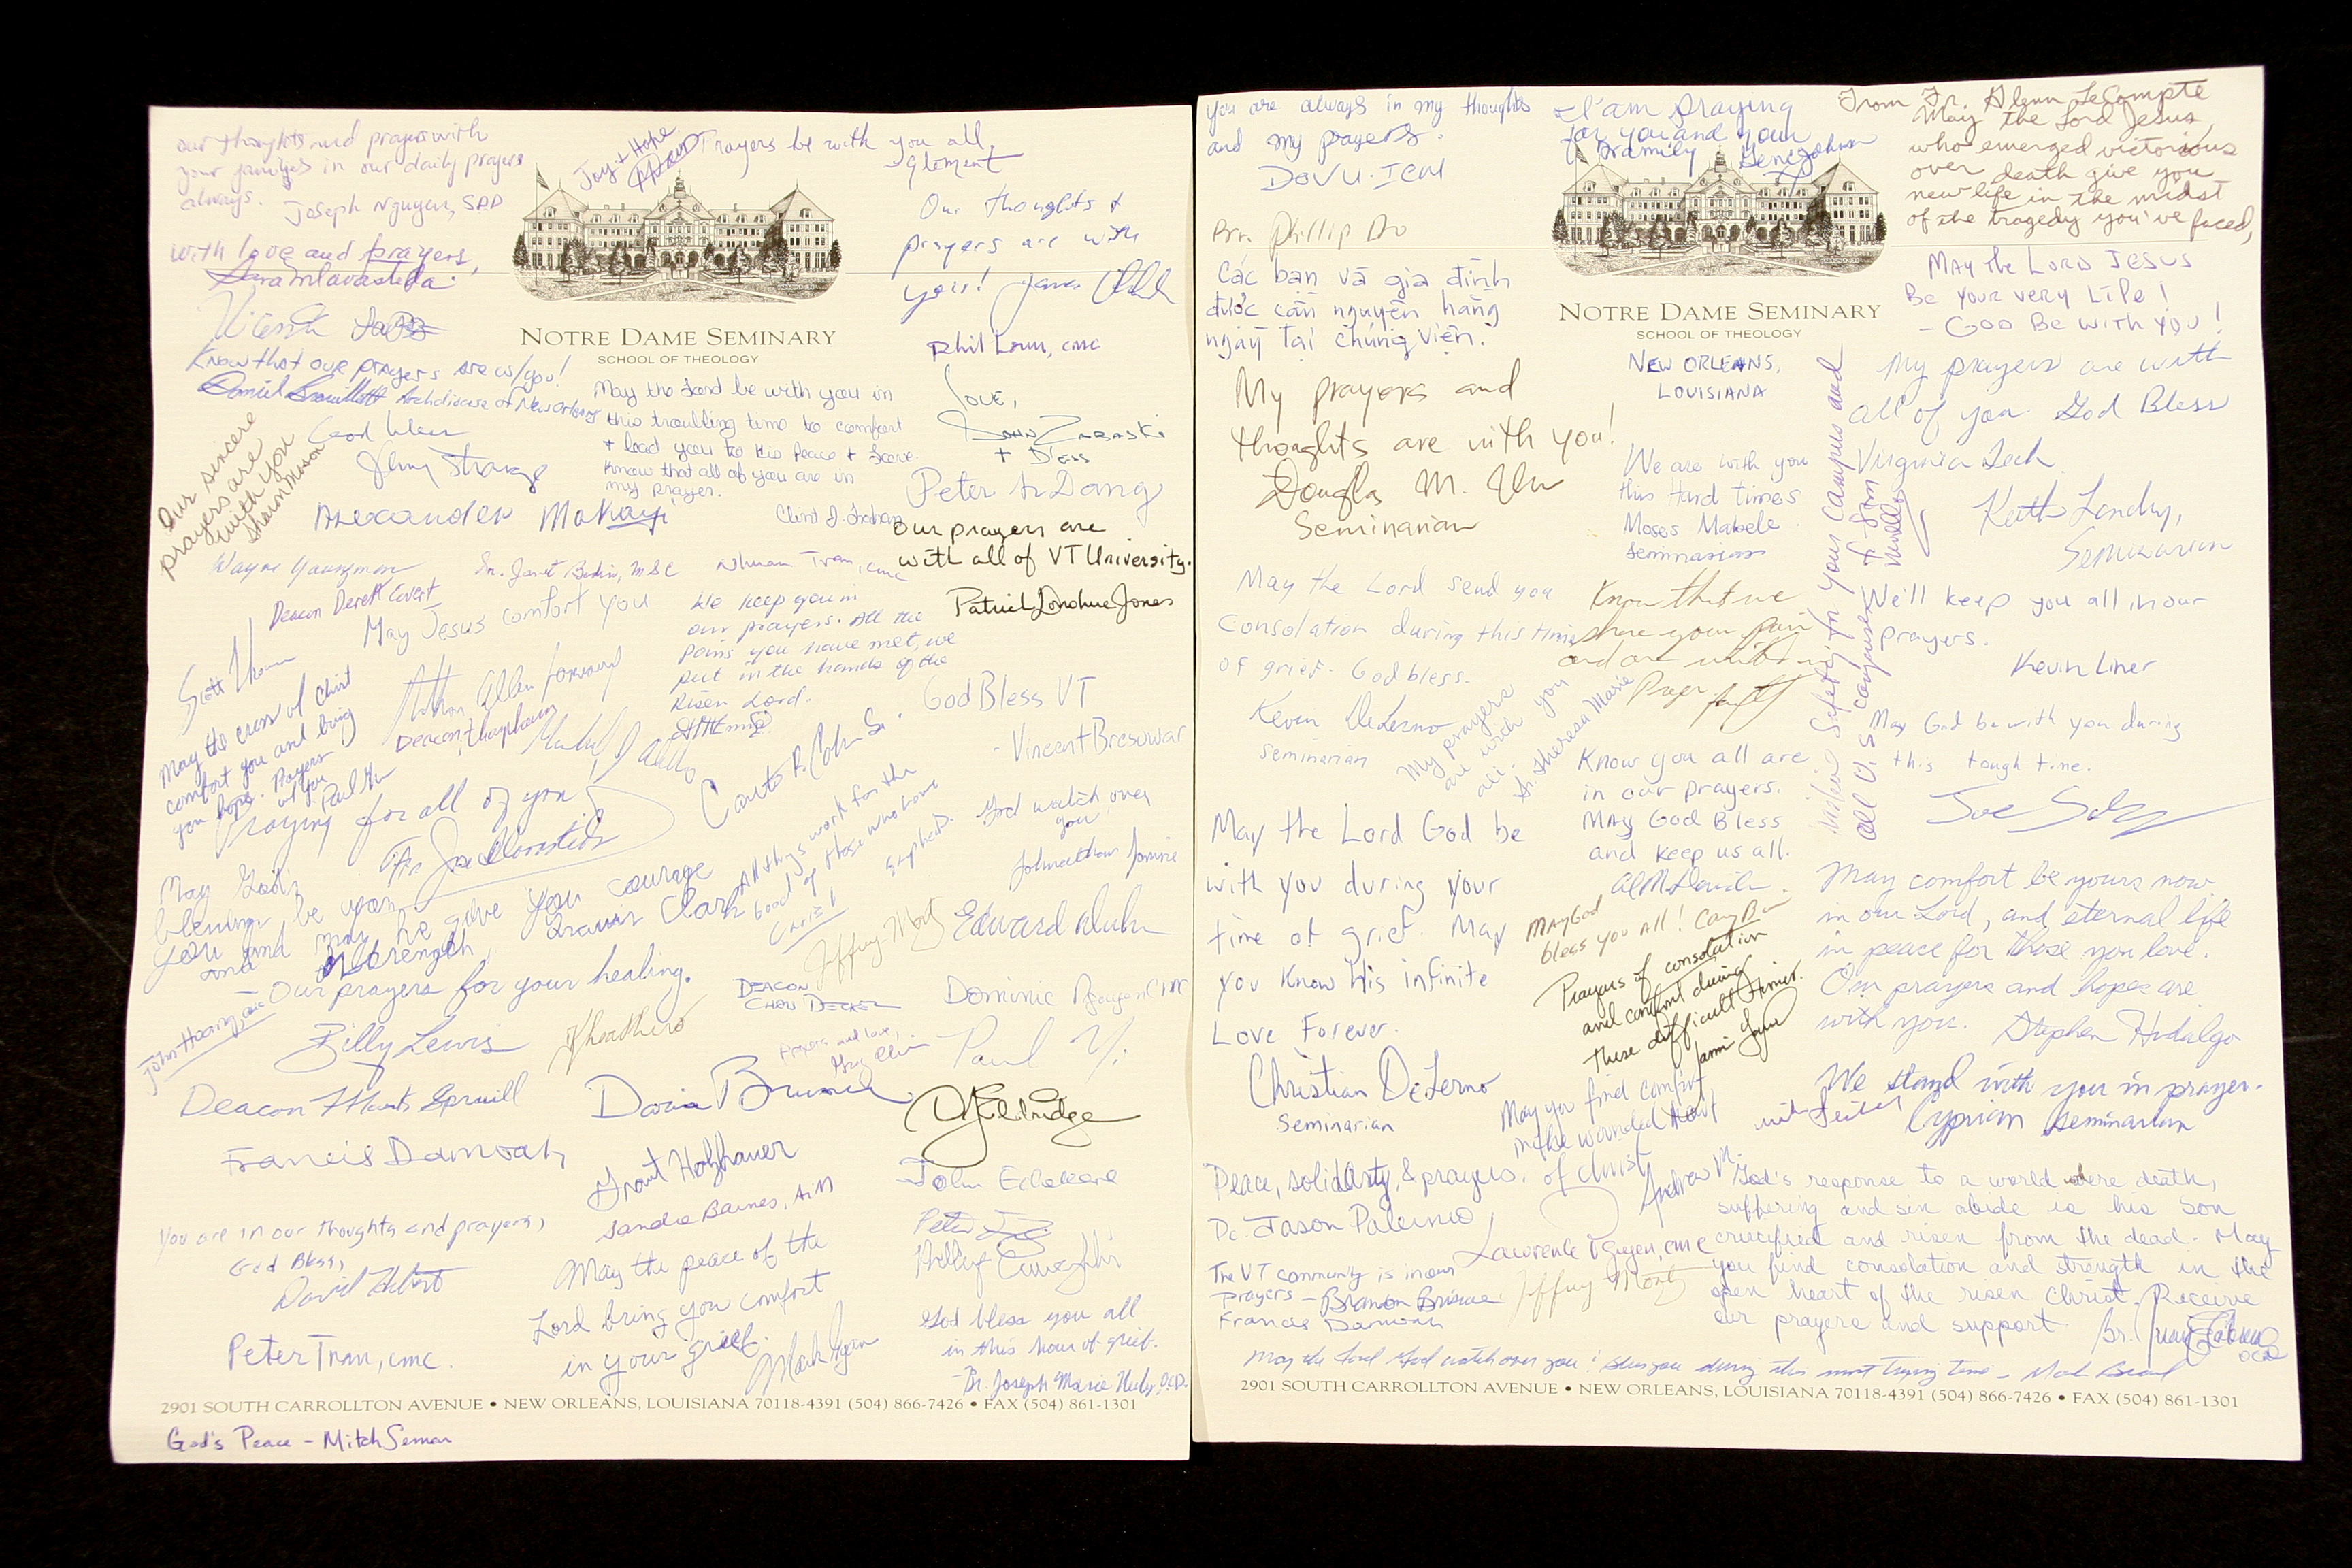 our thoughts and prayers with
your families in our daily prayers
always.
Joseph Nguyen, SDD
with love and prayers,
Know that our prayers are w/you!
Daniel Brouillette Archdiocese of New Orleans
Our sincere
prayers are
with you
Sharon
Jenny Strange
Alexander
Wayne Youngman
Deacon Derek Covert
Sr. Janet
MSC
Nhuan Tran, cmc
May Jesus comfort you
Joy + Hope
Prayers be with you all,
NOTRE DAME SEMINARY
SCHOOL OF THEOLOGY
May the Lord be with you in
this troubling time to comfort
+ lead you to His Peace + Love.
Know that all of you are in
my prayer.
Our thoughts &
prayers are with
you! James
Phil
cmc
Love,
John Zabaski
Peter
Dang
our prayers are
with all of VT University.
Patrick Donohue Jones
We keep you in
our prayers. All the
pains you have met, we
put in the hands of the
Risen Lord.
God Bless VT
- Vincent Bresowar
Scott
May the cross of Christ
comfort you and bring
you hope. Prayers
Paul
Praying for all of you!
Fr. Joe
God watch over
you,
Johnathan
All things work for the
good of those who love
Christ!
Stephen
May God's
blessings be upon
you and may he give you courage
and strength
Travis Clark
- Our prayers for your healing.
John Hoang, cmc
Billy Lewis
Jeffrey Mont
Edward
DEACON
Dominic Nguyen CMC
Prayers and love,
Paul
Deacon
Spruill
Francis Damoah
Grant Holzhauer
Sandra Barnes, AIM
John
Peter
You are in our thoughts and prayers,
God Bless,
David Hebert
Peter Tran, cmc.
May the peace of the
Lord bring you comfort
in your grief.
God bless you all
in this hour of grief.
- Br. Joseph Marie
O.C.D.
2901 SOUTH CARROLLTON AVENUE • NEW ORLEANS, LOUISIANA 70118-4391 (504) 866-7426 • FAX (504) 861-1301
God's Peace - Mitch Semar
you are always in my thoughts
and my prayers.
Bro. Phillip Do
Các bạn và gia đình
được cầu nguyện hằng
ngày tại chủng viện.
My prayers and
thoughts are with you!
Douglas M.
Seminarian
May the Lord send you
consolation during this time
of grief. God bless.
Kevin DeLerno
seminarian
My prayers
are with you
all.
Sr. Theresa Marie
May the Lord God be
with you during your
time of grief. May
you know His infinite
Love Forever.
Christian DeLerno
Seminarian
Peace, solidarity, & prayers.
Dc. Jason Palermo
The VT community is in our
prayers -
Francis Damoah
I am praying
for you and your
family
NOTRE DAME SEMINARY
SCHOOL OF THEOLOGY
NEW ORLEANS,
LOUISIANA
We are with you
this Hard times
Moses Mabele
Seminarians
Know that we
share your pain
and are united in
Prayer
Know you all are
in our prayers.
MAY God Bless
and keep us all.
MAY God
bless you All!
Prayers of consolation
and comfort during
these difficult times.
May you find comfort
in the wounded Heart
of Christ
Andrew M.
Lawrence Nguyen, cmc
Jeffrey Mont
From Fr. Glenn LeCompte
May the Lord Jesus,
who emerged victorious
over death give you
new life in the midst
of the tragedy you've faced,
MAY the LORD JESUS
BE YOUR VERY LIFE!
- GOD BE WITH YOU!
My prayers are with
all of you. God Bless
Virginia Tech.
Keith Landry,
Seminarian
safety for your campus and
all U.S. campuses
We'll keep you all in our
prayers.
Kevin Liner
May God be with you during
this tough time.
Joe
May comfort be yours now
in our Lord, and eternal life
in peace for those you love.
Our prayers and hopes are
with you. Stephen Hidalgo
We stand with you in prayer.
Cyprian Seminarian
God's response to a world where death,
suffering and sin abide is his Son
crucified and risen from the dead. May
you find consolation and strength in the
open heart of the risen Christ. Receive
our prayers and support.
OCD
May the Lord God watch over you & bless you during this most trying time -
2901 SOUTH CARROLLTON AVENUE • NEW ORLEANS, LOUISIANA 70118-4391 (504) 866-7426 • FAX (504) 861-1301